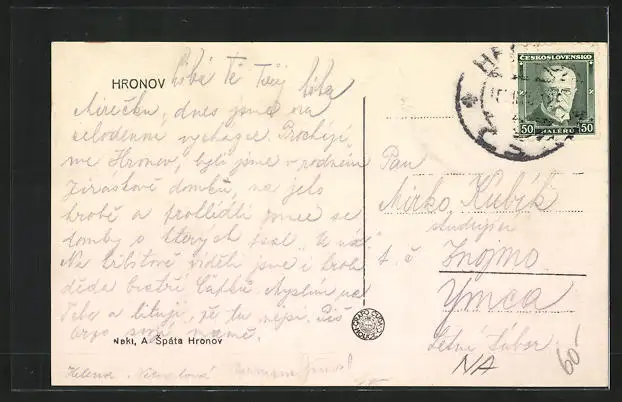 HRONOV líbá Tě Tvůj
Mirečku, dnes jsme na
celodenní vycházce. Prochází
me Hronov, byli jsme v rodném
Jiráskově domku, na jeho
hrobě a prohlédli jsme si
domky o kterých psal "U nás"
Na hřbitově viděli jsme i hrob
děda bratří Čapků. Myslím na
Tebe a lituji, že tu nejsi. Piš
brzo své mamě.
Nakl. A. Špáta Hronov
Helena
ČESKOSLOVENSKO
50 HALÉŘŮ 50
Pan
Mirko Kubík
studující
t. č. Znojmo
Ymca
Letní Tábor.
NA
60